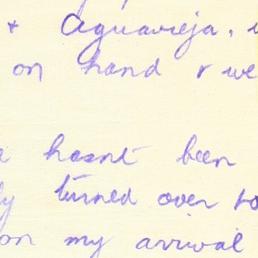 & Aguavieja,
on hand & we
hasnt been
turned over to
on my arrival